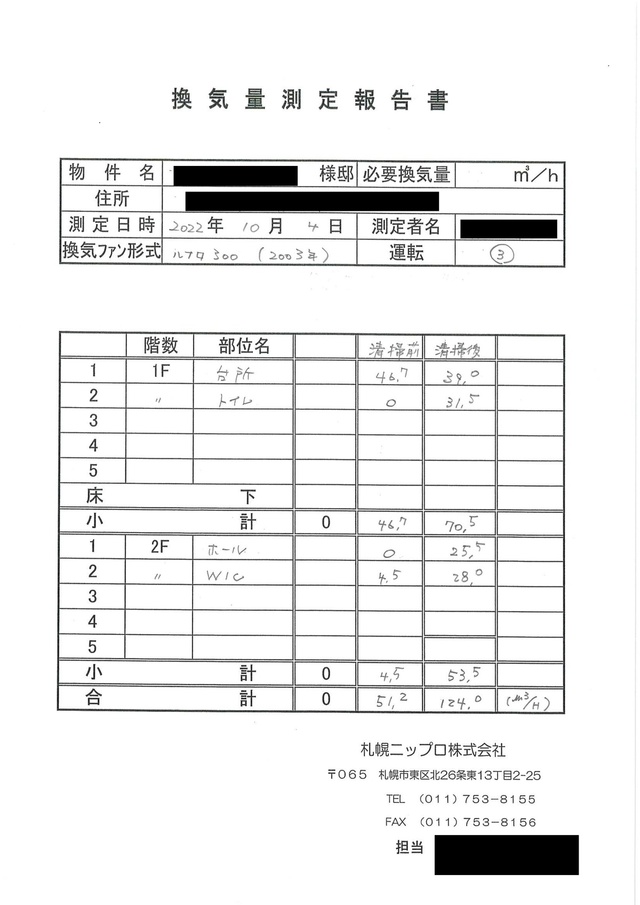 換気量測定報告書
物件名 様邸 必要換気量 ㎥/h
住所
測定日時 2022年 10月 4日 測定者名
換気ファン形式 ルフロ300 (2003年) 運転 ③
階数 部位名 清掃前 清掃後
1 1F 台所 46.7 39.0
2 〃 トイレ 0 31.5
3
4
5
床下
小計 0 46.7 70.5
1 2F ホール 0 25.5
2 〃 WIC 4.5 28.0
3
4
5
小計 0 4.5 53.5
合計 0 51.2 124.0 (m³/H)
札幌ニップロ株式会社
〒065 札幌市東区北26条東13丁目2-25
TEL (011)753-8155
FAX (011)753-8156
担当